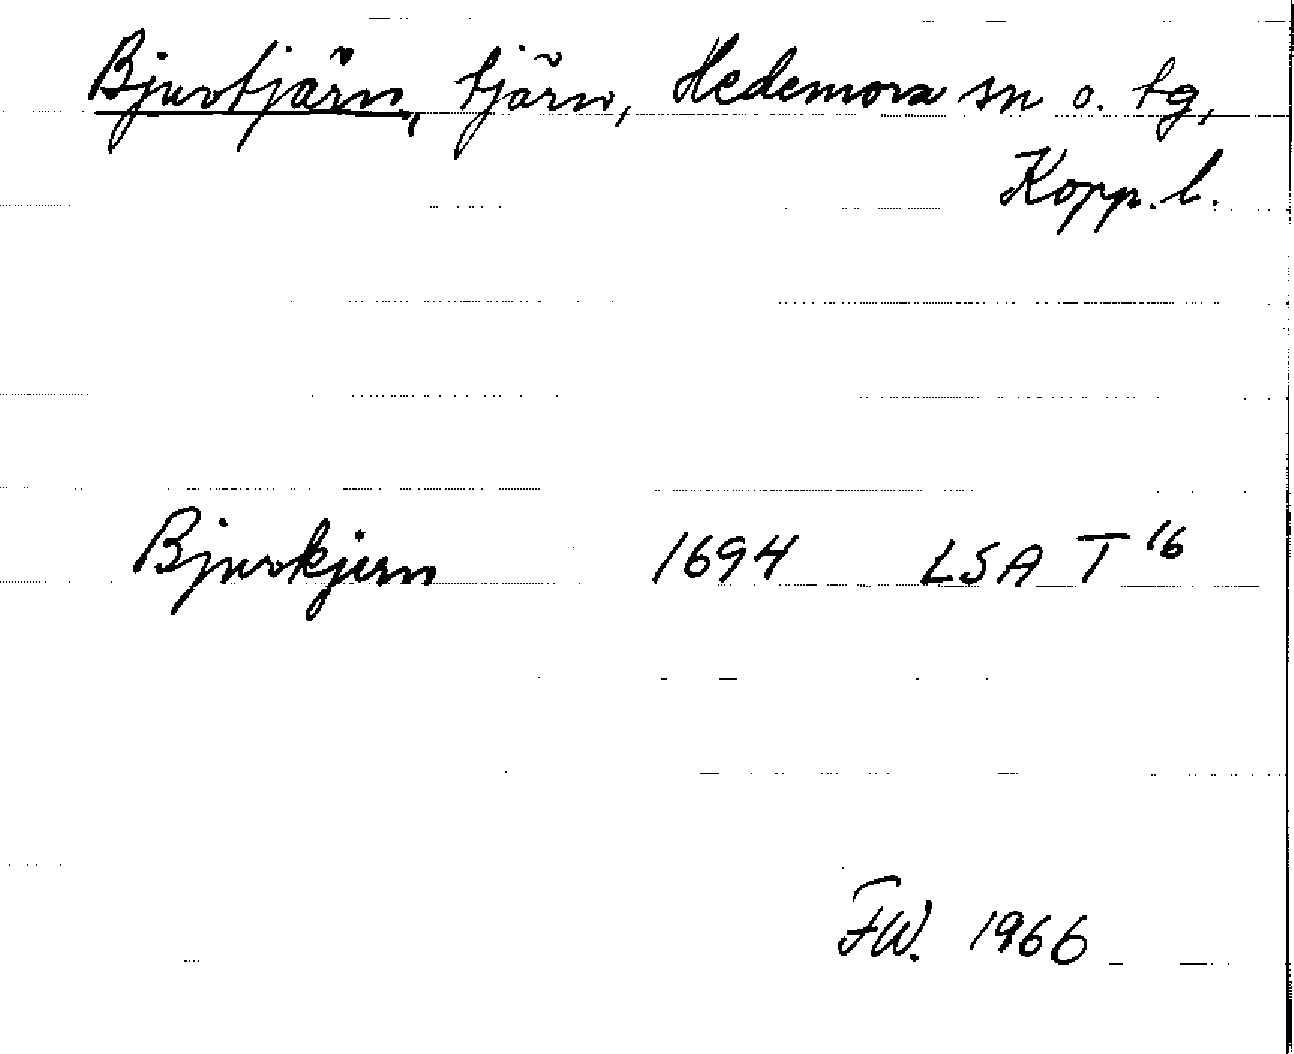 Bjurtjärn, tjärn, Hedemora sn o. tg,
Kopp. l.
Bjurkjern 1694 LSA T 16
FW. 1966